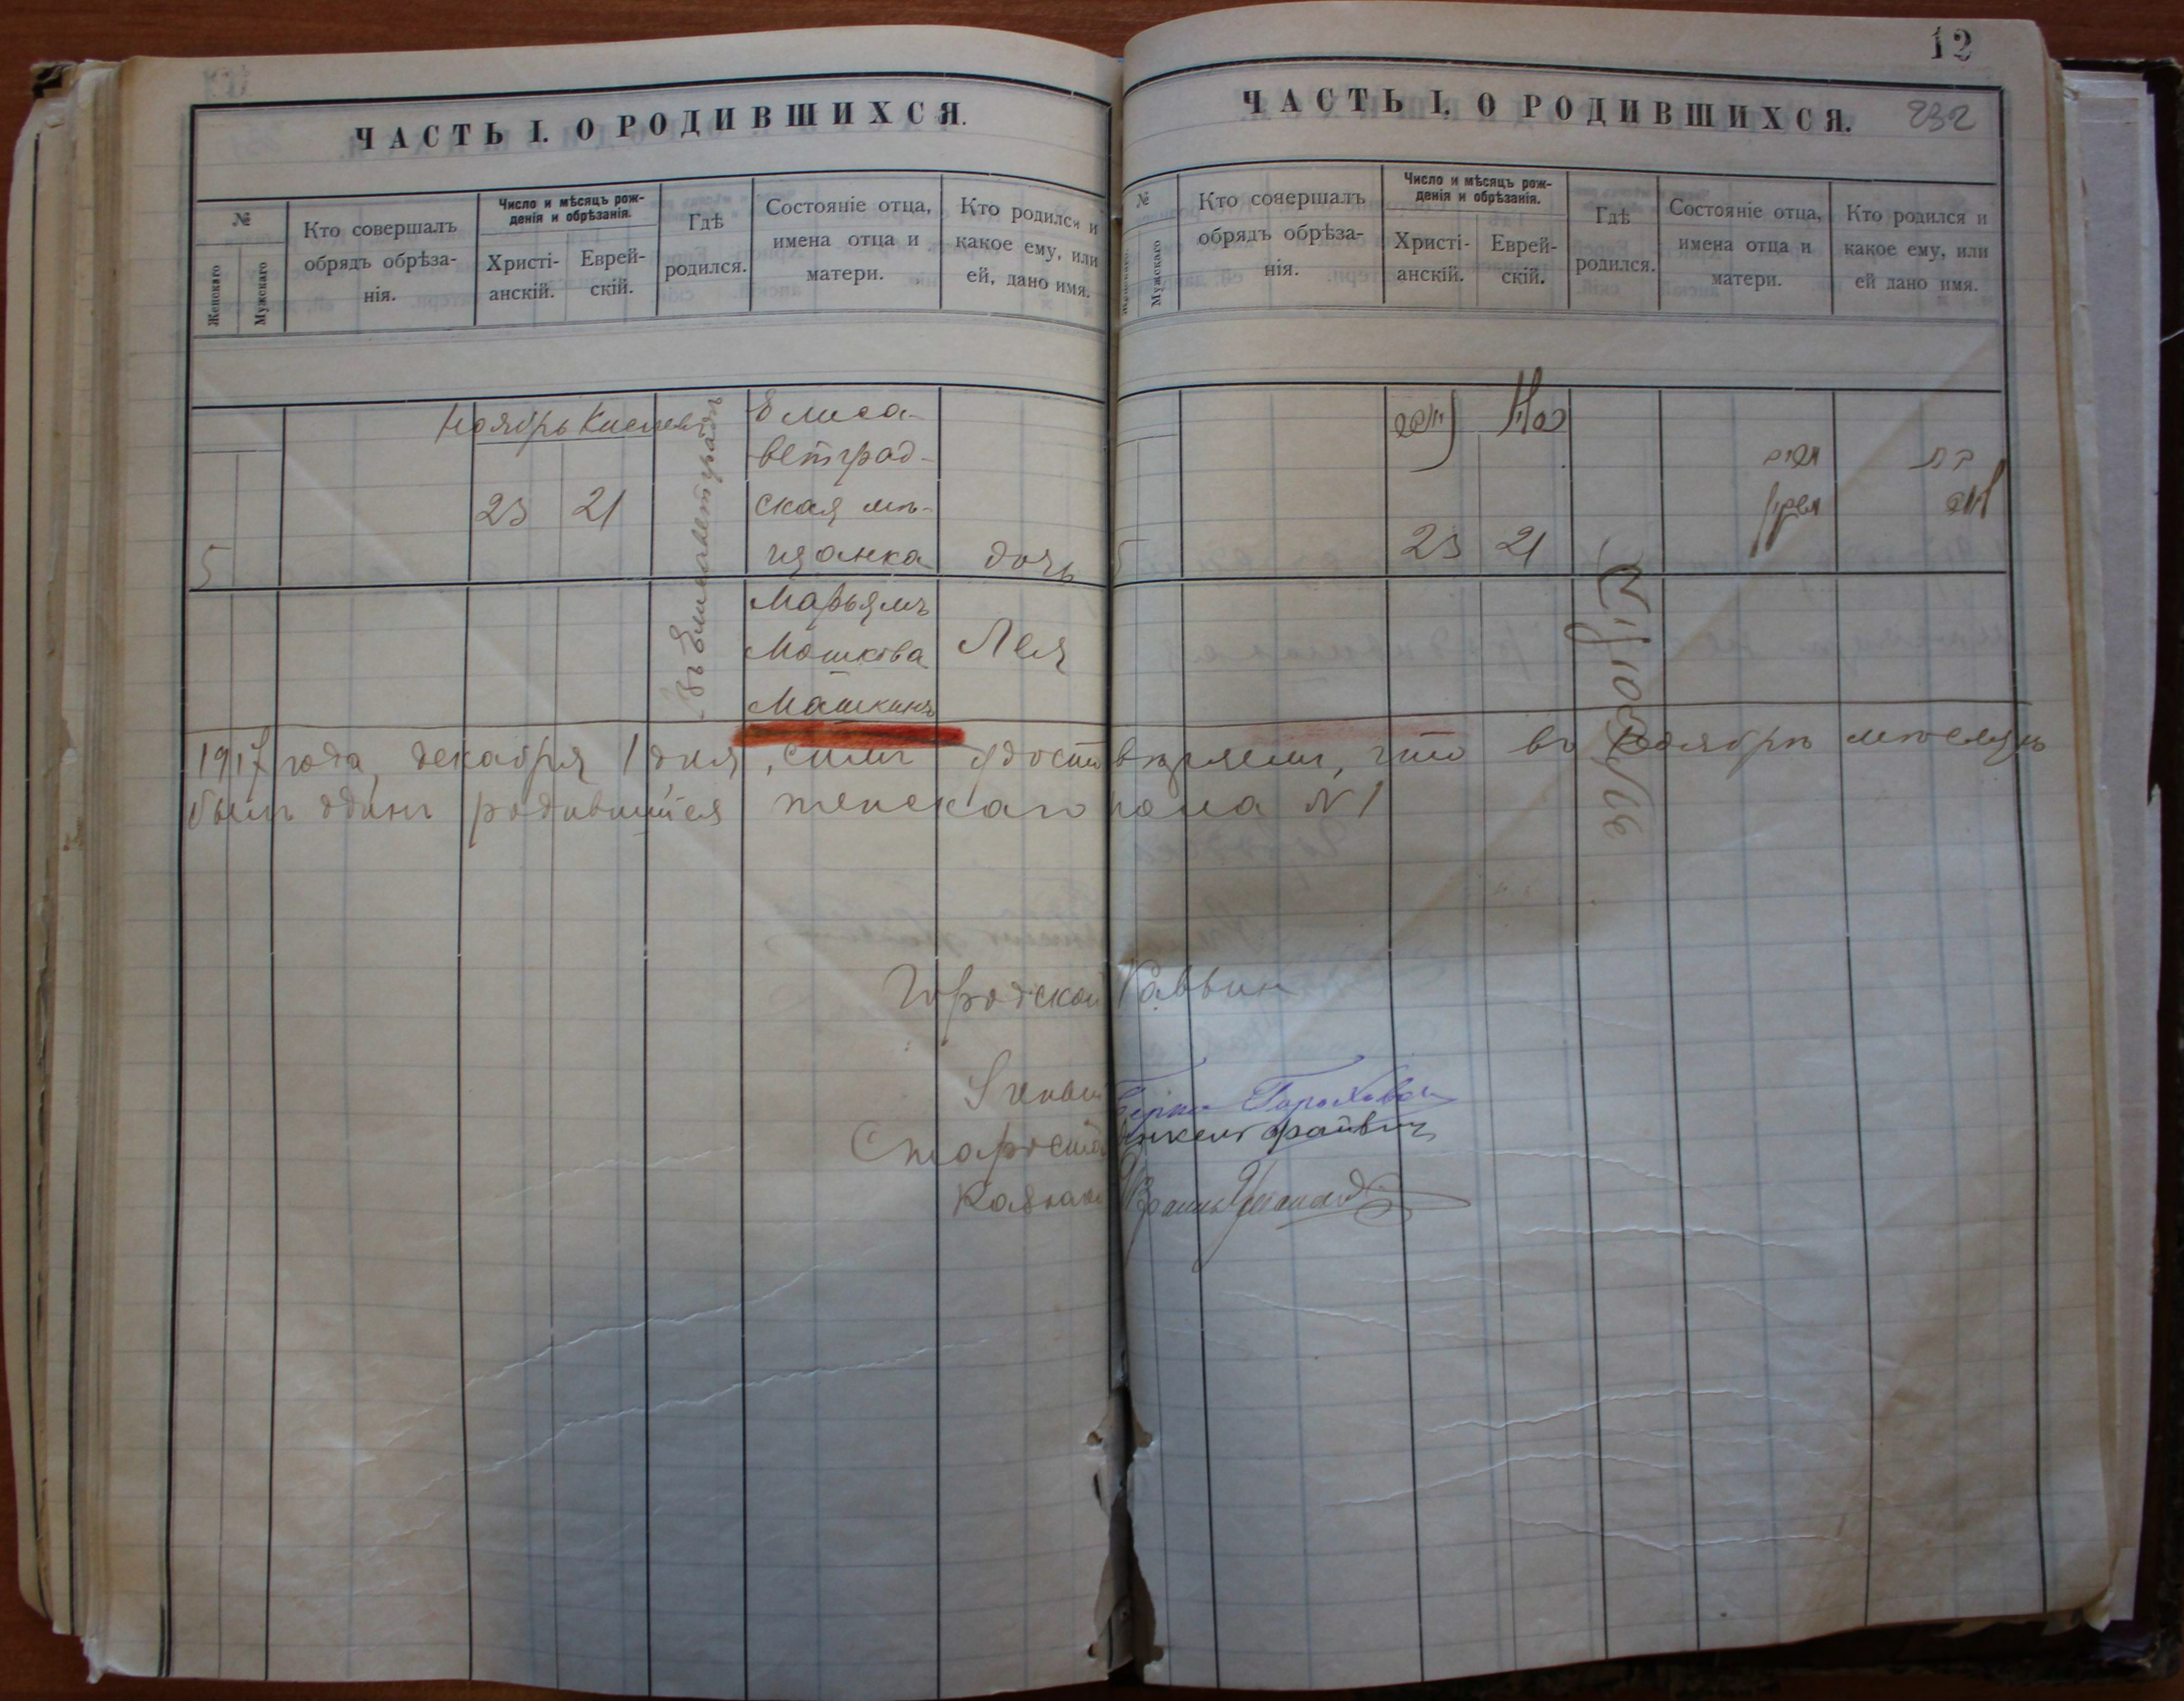 12
ЧАСТЬ I. О РОДИВШИХСЯ.
№
Женскаго
Мужскаго
Кто совершалъ
обрядъ обрѣза-
нія.
Число и мѣсяцъ рож-
денія и обрѣзанія.
Христі-
анскій.
Еврей-
скій.
Гдѣ
родился.
Состояніе отца,
имена отца и
матери.
Кто родился и
какое ему, или
ей, дано имя.
Ноябрь Кислевъ
5
23 21
Въ Елисаветградѣ
Елиса-
ветград-
ская мѣ-
щанка
Марьямъ
Мошкова
Машкинъ
дочь
Лея
ЧАСТЬ I. О РОДИВШИХСЯ. 232
№
Мужскаго
Кто совершалъ
обрядъ обрѣза-
нія.
Число и мѣсяцъ рож-
денія и обрѣзанія.
Христі-
анскій.
Еврей-
скій.
Гдѣ
родился.
Состояніе отца,
имена отца и
матери.
Кто родился и
какое ему, или
ей дано имя.
5
23 21
מרים
בת
לאה
1917 года, декабря 1 дня, симъ удостовѣряемъ, что въ Ноябрѣ мѣсяцѣ
былъ одинъ родившійся женскаго пола № 1
Городской Раввин
Ученый
Староста
Казначей